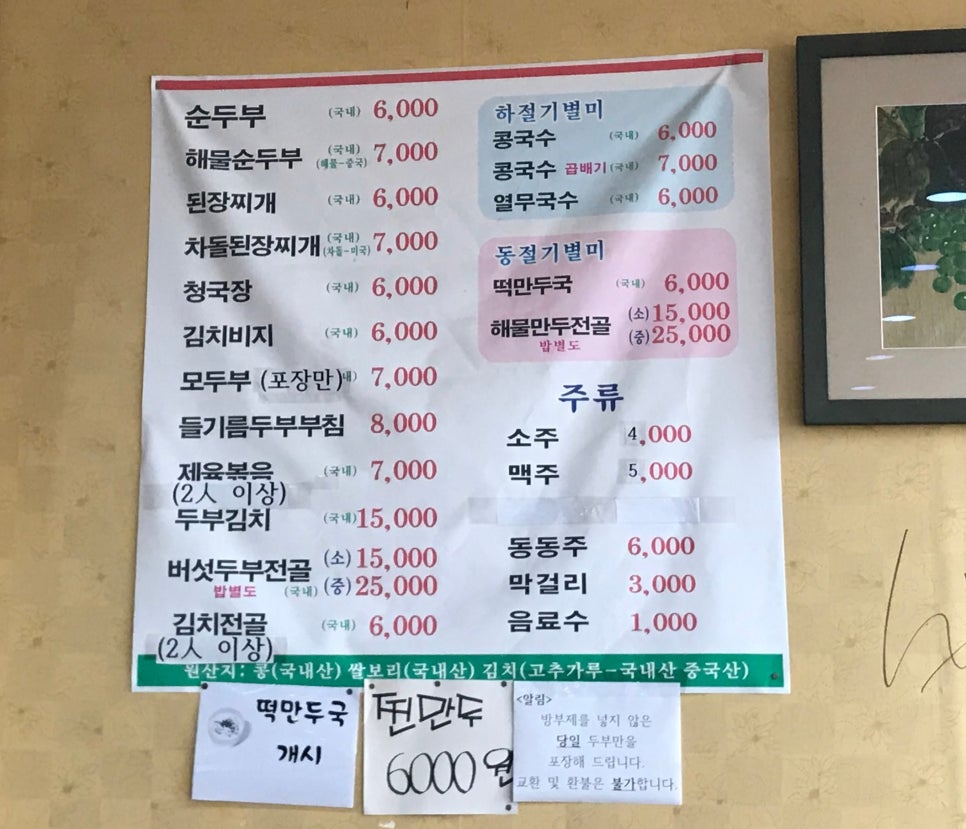 순두부 (국내) 6,000
해물순두부 (국내) (해물-중국) 7,000
된장찌개 (국내) 6,000
차돌된장찌개 (국내) (차돌-미국) 7,000
청국장 (국내) 6,000
김치비지 (국내) 6,000
모두부 (포장만) 내) 7,000
들기름두부부침 8,000
제육볶음 (국내) 7,000
(2人 이상)
두부김치 (국내) 15,000
버섯두부전골 (소) 15,000
밥별도 (국내) (중) 25,000
김치전골 (국내) 6,000
(2人 이상)
하절기별미
콩국수 (국내) 6,000
콩국수 곱배기 (국내) 7,000
열무국수 (국내) 6,000
동절기별미
떡만두국 (국내) 6,000
해물만두전골 (소) 15,000
밥별도 (중) 25,000
주류
소주 4,000
맥주 5,000
동동주 6,000
막걸리 3,000
음료수 1,000
원산지: 콩(국내산) 쌀보리(국내산) 김치(고추가루-국내산 중국산)
떡만두국
개시
찐만두
6000원
<알림>
방부제를 넣지 않은
당일 두부만을
포장해 드립니다.
교환 및 환불은 불가합니다.